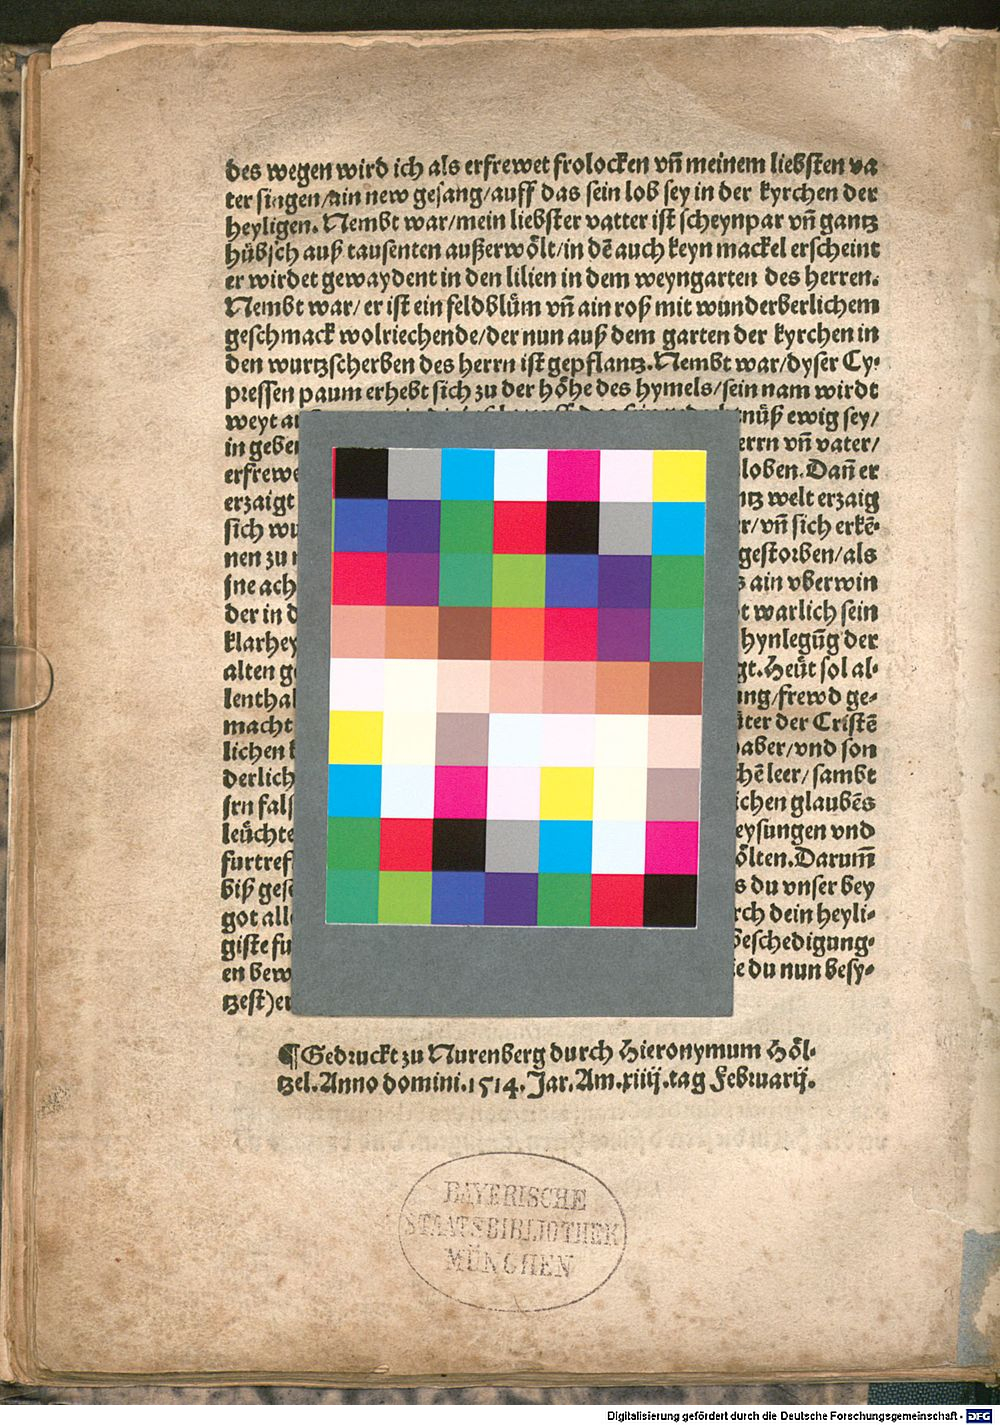 des wegen wird ich als erfrewet frolocken vñ meinem liebsten va
ter singen/ain new gesang/auff das sein lob sey in der kyrchen der
heyligen. Nembt war/mein liebster vatter ist scheynpar vñ gantz
hübsch auß tausenten außerwoͤlt/in dē auch keyn mackel erscheint
er wirdet gewaydent in den lilien in dem weyngarten des herren.
Nembt war/ er ist ein feldblům vñ ain roß mit wunderberlichem
geschmack wolriechende/der nun auß dem garten der kyrchen in
den wurtzscherben des herrn ist gepflantz. Nembt war/dyser Cy-
pressen paum erhebt sich zu der hoͤhe des hymels/sein nam wirdt
weyt nüß ewig sey/
in gebe errn vñ vater/
erfrewe loben. Dañ er
erzaigt ntz welt erzaig
sich wu r/vñ sich erkē-
nen zu gestorben/als
jne ach s ain vberwin
der in d t warlich sein
klarhey hynlegūg der
alten ge gt. Heüt sol al-
lenthal ung/frewd ge-
macht ter der Cristē
lichen aber/vnd son
derlich hē leer/sambt
jrn fals ichen glaubēs
leüchte eysungen vnd
furtref oͤlten. Darum̄
biß gese s du vnser bey
got all rch dein heyli-
giste fu beschedigung-
en bew e du nun besy-
tzest) er
¶ Gedruckt zu Nurenberg durch Hieronymum Hoͤl-
tzel. Anno domini. 1514. Jar. Am. xiiij. tag Februarij.
BAYERISCHE
STAATSBIBLIOTHEK
MÜNCHEN
Digitalisierung gefördert durch die Deutsche Forschungsgemeinschaft - DFG